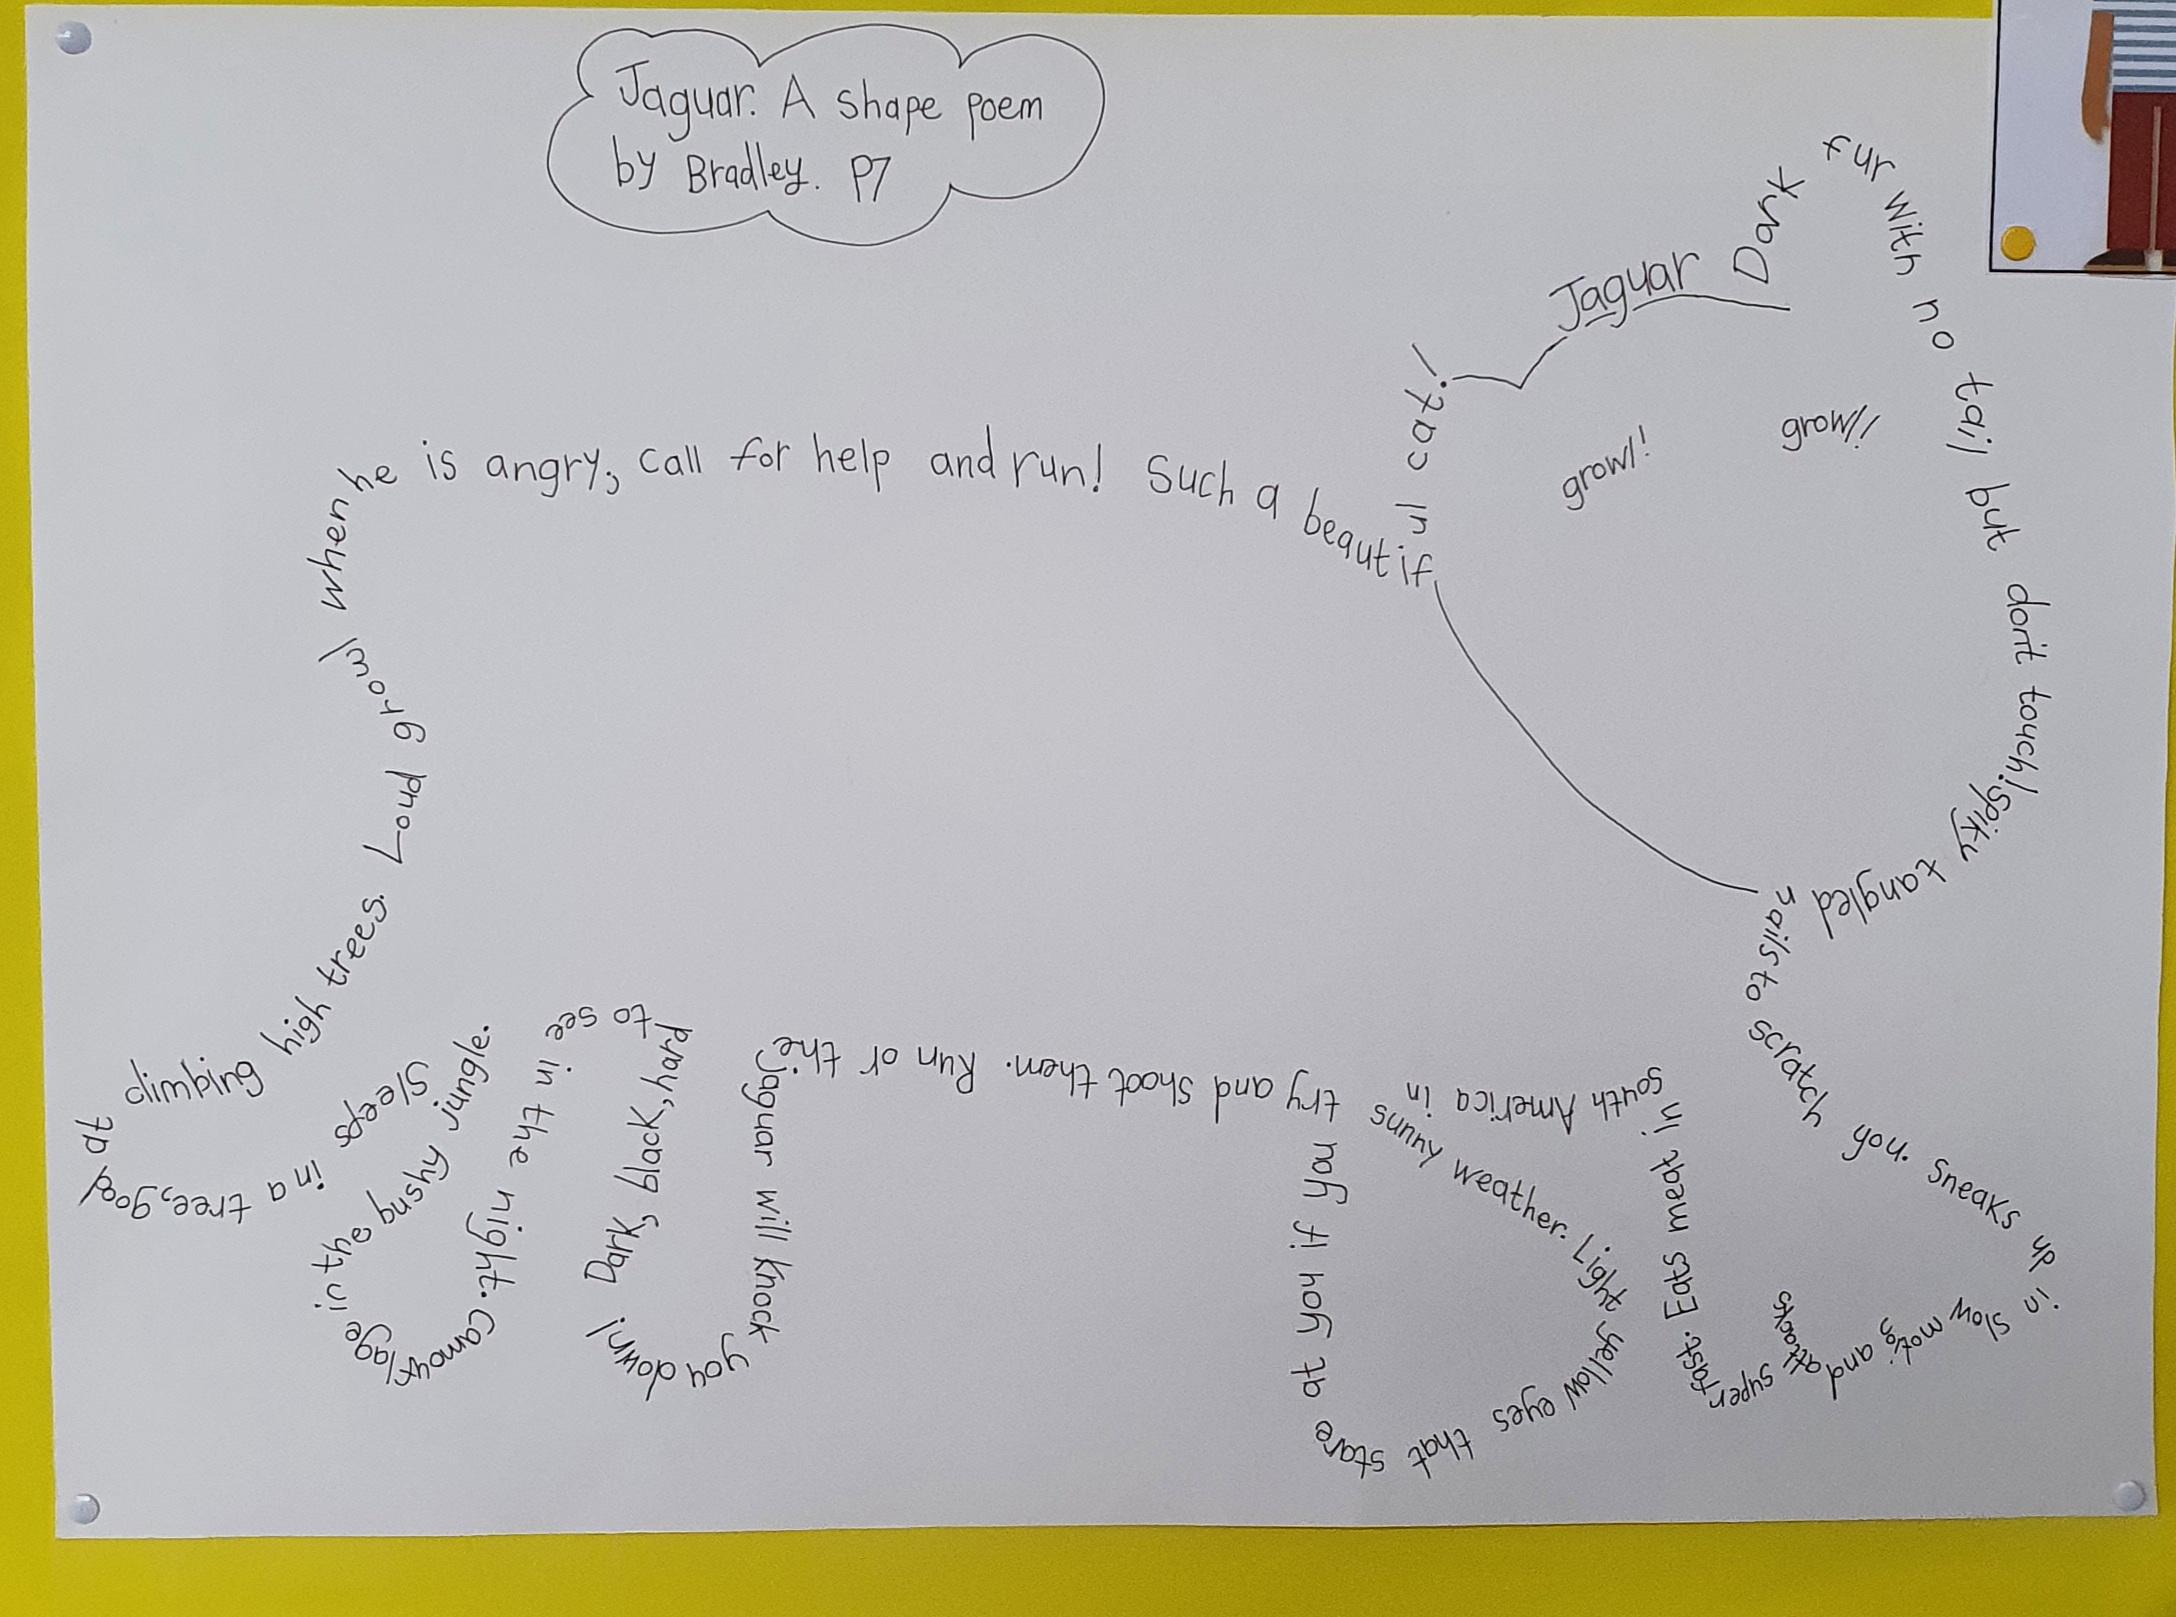 Jaguar. A shape poem
by Bradley. P7
Jaguar
Dark fur with no tail but don't touch!
Spiky tangled
nails to scratch you. Sneaks up
in slow motion and
attacks
super fast. Eats meat in
south America in
sunny weather. Light yellow eyes that stare at you if you
try and shoot them. Run or the
Jaguar will knock you down! Dark, black, hard
to see in the night. Camouflage in the bushy jungle.
Sleeps in a tree, good
at climbing high trees. Loud growl when he is angry, call for help and run! Such a beautif
ul cat!
growl!
growl!